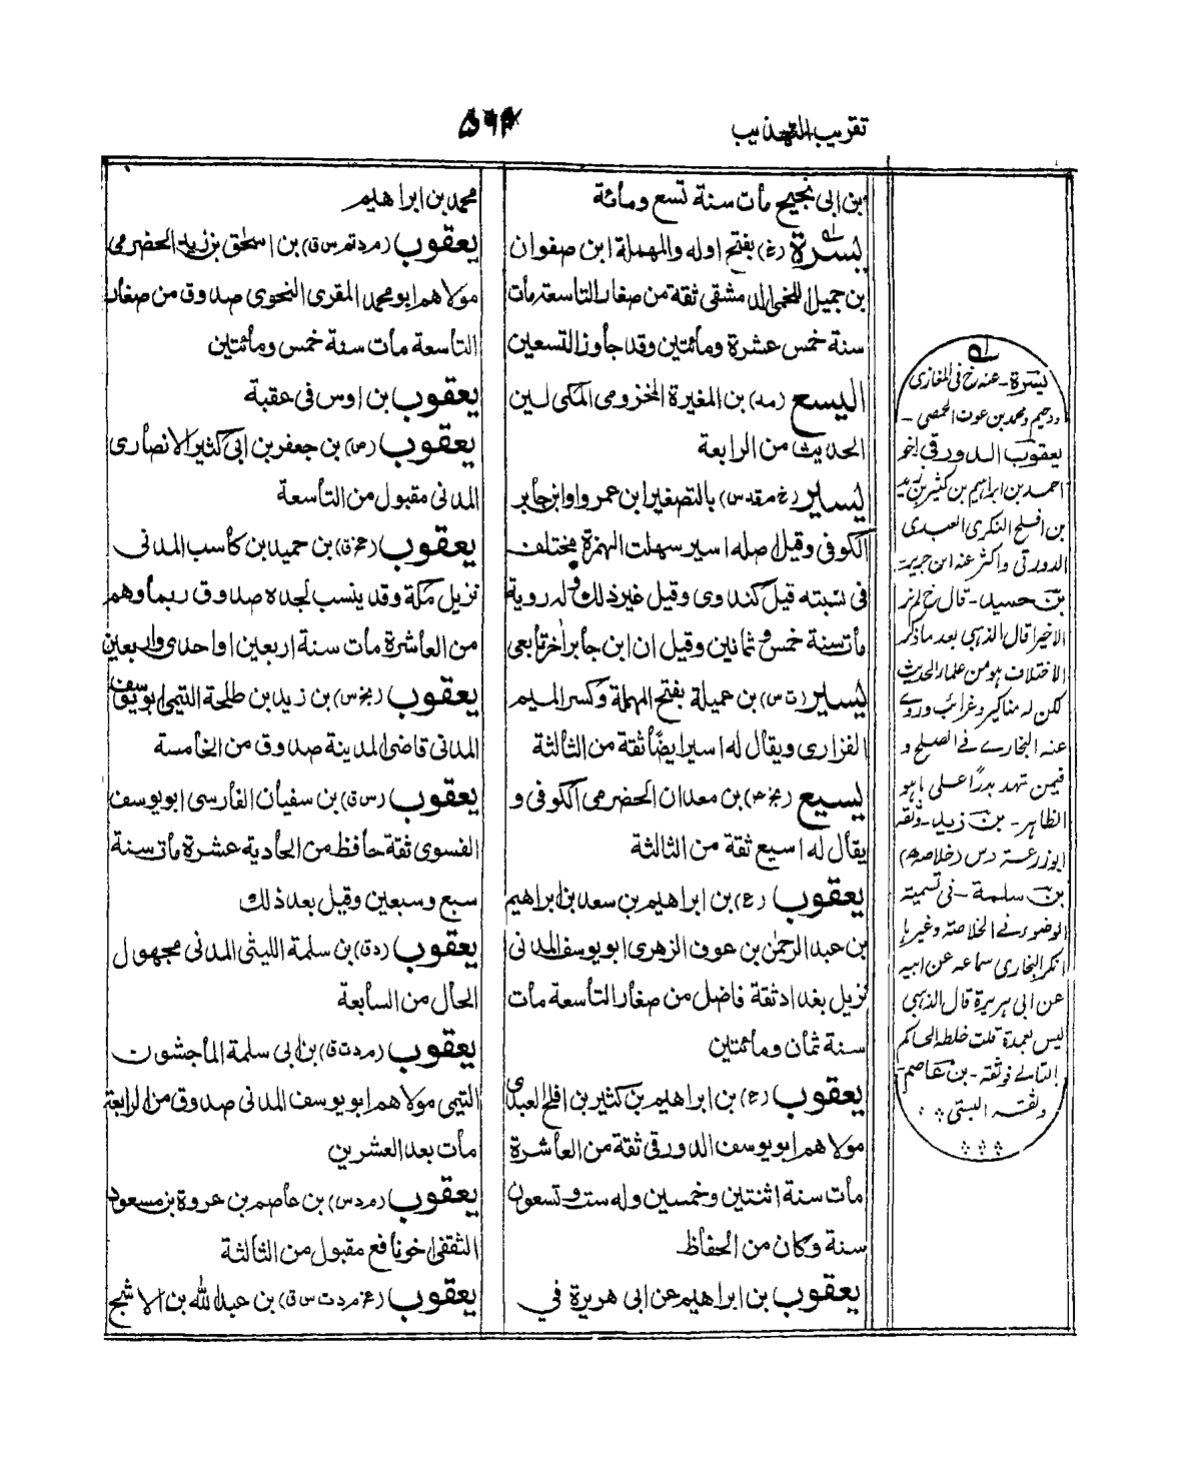 تقریب التهذیب
بن ابی نجیح مات سنة تسع ومائة
یسرة (خ) بفتح اوله والمهملة ابن صفوان
بن جمیل اللخمی الدمشقی ثقة من صغار التاسعة مات
سنة خمس عشرة ومائتین وقد جاوز التسعین
الیسع (مد) بن المغیرة المخزومی المکی لین
الحدیث من الرابعة
یسیر (خ م قد س) بالتصغیر ابن عمرو او ابن جابر
الکوفی وقیل اصله اسیر سهلت الهمزة مختلف
فی نسبته قیل کندی وقیل غیر ذلك وله رویة
مات سنة خمس وثمانین وقیل ان ابن جابر اخر تابعی
یسیر (ت س) بن عمیلة بفتح المهملة وکسر المیم
الفزاری ویقال له اسیر ایضًا ثقة من الثالثة
یسیع (بخ عم) بن معدان الحضرمی الکوفی و
یقال له اسیع ثقة من الثالثة
یعقوب (ع) بن ابراهیم بن سعد بن ابراهیم
بن عبد الرحمٰن بن عوف الزهری ابو یوسف المدنی
نزیل بغداد ثقة فاضل من صغار التاسعة مات
سنة ثمان ومائتین
یعقوب (ع) بن ابراهیم بن کثیر بن افلح العبدی
مولاهم ابو یوسف الدورقی ثقة من العاشرة
مات سنة اثنتین وخمسین وله ست وتسعون
سنة وکان من الحفاظ
یعقوب بن ابراهیم عن ابی هریرة فی
محمد بن ابراهیم
یعقوب (م د تم س ق) بن اسحٰق بن زید الحضرمی
مولاهم ابو محمد المقری النحوی صدوق من صغار
التاسعة مات سنة خمس ومائتین
یعقوب بن اوس فی عقبة
یعقوب (ص) بن جعفر بن ابی کثیر الانصاری
المدنی مقبول من التاسعة
یعقوب (عخ ق) بن حمید بن کاسب المدنی
نزیل مکة وقد ینسب لجده صدوق ربما وهم
من العاشرة مات سنة اربعین او احدی واربعین
یعقوب (بخ س) بن زید بن طلحة التیمی ابو یوسف
المدنی قاضی المدینة صدوق من الخامسة
یعقوب (س ق) بن سفیان الفارسی ابو یوسف
الفسوی ثقة حافظ من الحادیة عشرة مات سنة
سبع وسبعین وقیل بعد ذلك
یعقوب (د ق) بن سلمة اللیثی المدنی مجهول
الحال من السابعة
یعقوب (م د ت ق) بن ابی سلمة الماجشون
التیمی مولاهم ابو یوسف المدنی صدوق من الرابعة
مات بعد العشرین
یعقوب (م د س) بن عاصم بن عروة بن مسعود
الثقفی اخو نافع مقبول من الثالثة
یعقوب (عخ م د ت س ق) بن عبد الله بن الاشج
له
یسرة ـ عنه خ فی المغازی
ودحیم ومحمد بن عوف الحمصی ـ
یعقوب الدورقی اخو
احمد بن ابراهیم بن کثیر بن زید
بن افلح النکری العبدی
الدورقی واکثر عنه ابن جریر
بن حمید ـ قال خ لم نر
الا خیرا قال الذهبی بعد ما ذکر
الاختلاف هو من علماء الحدیث
لکن له مناکیر وغرائب وروی
عنه البخاری فی الصلح و
فیمن شهد بدرًا علی ما هو
الظاهر ـ بن زید ـ وثقه
ابو زرعة و س (خلاصه)
بن سلمة ـ فی تسمیة
الوضوء فی الخلاصة وغیرها
انکر البخاری سماعه عن ابیه
عن ابی هریرة قال الذهبی
لیس بعمدة قلت خلط الحاکم
فوثقه ـ بن عاصم ـ
وثقه البستی